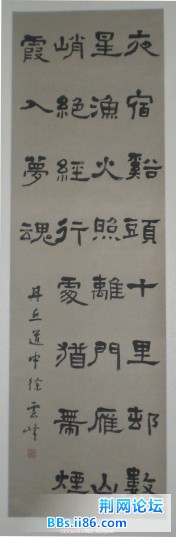 夜宿谿頭十里邨數
星漁火照離門雁山
峭絕經行處猶帶煙
霞入夢魂
丹丘道中徐雲
荆网论坛
BBs.ii86.com